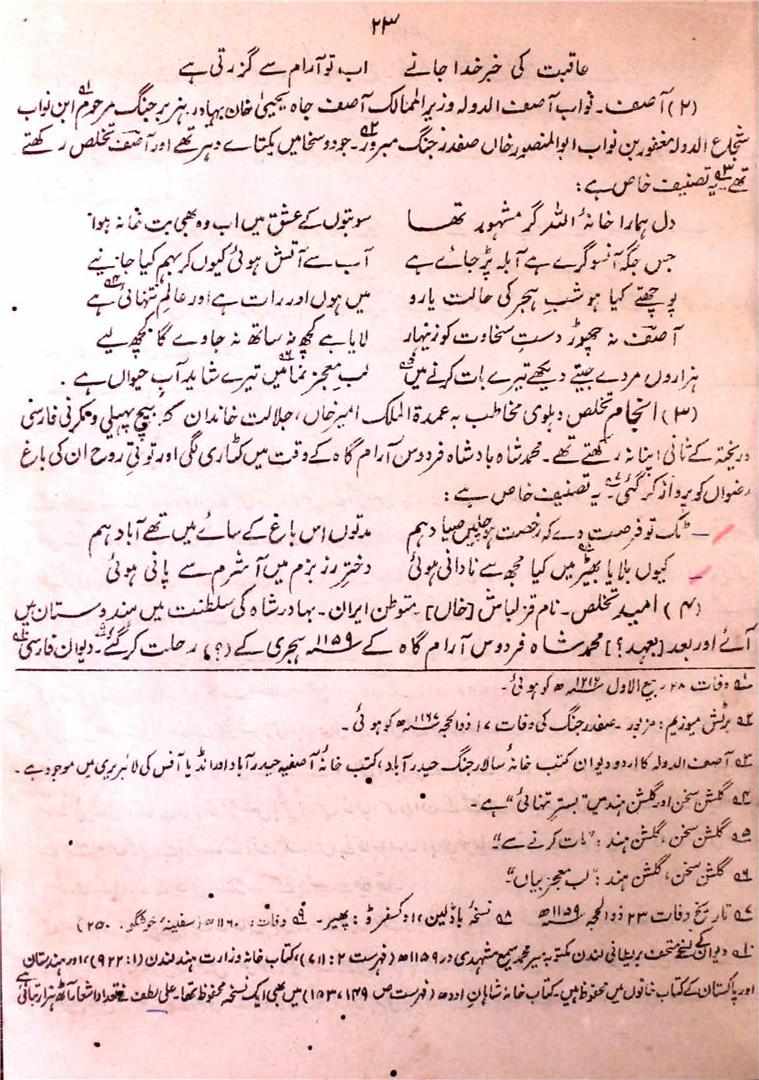 ۲۳
عاقبت کی خبر خدا جانے اب تو آرام سے گزرتی ہے
(۲) آصف۔ نواب آصف الدولہ وزیر الممالک آصف جاہ یحییٰ خان بہادر ہزبر جنگ مرحوم ۱؎ ابن نواب
شجاع الدولہ مغفور بن نواب ابو المنصور خاں صفدر جنگ مبرور ۲؎۔ جود و سخا میں یکتاے دہر تھے اور آصفؔ تخلص رکھتے
تھے ۳؎ یہ تصنیف خاص ہے:
دل ہمارا خانۂ اللہ گر مشہور تھا سو بتوں کے عشق میں اب وہ بھی بت خانہ ہوا
جس جگہ آنسو گرے ہے آبلہ پڑ جاے ہے آب سے آتش ہوئی کیوں کر بہم کیا جانیے
پوچھتے کیا ہو شبِ ہجر کی حالت یارو میں ہوں اور رات ہے اور عالمِ تنہائی ۴؎ ہے
آصفؔ نہ چھوڑ دستِ سخاوت کو زینہار لایا ہے کچھ نہ ساتھ نہ جاوے گا کچھ لیے
ہزاروں مردے جیتے دیکھے تیرے بات کرنے میں ۵؎ لب معجز نما ۶؎ میں تیرے شاید آبِ حیواں ہے۔
(۳) انجام تخلص دہلوی مخاطب بہ عمدۃ الملک امیر خاں، جلالت خاندان کہ بیچ پہیلی و مکرنی فارسی
و ریختہ کے ثانی اپنا نہ رکھتے تھے۔ محمد شاہ بادشاہ فردوس آرام گاہ کے وقت میں کٹاری لگی اور توتیِ روح ان کی باغ
رضواں کو پرواز کر گئی ۷؎۔ یہ تصنیف خاص ہے:
ٹک تو فرصت دے کہ رخصت ہو چلیں صیاد ہم مدتوں اس باغ کے سائے میں تھے آباد ہم
کیوں بلایا بھیڑ ۸؎ میں کیا مجھ سے نادانی ہوئی دخترِ رز بزم میں آ شرم سے پانی ہوئی
(۴) امید تخلص۔ نام قزلباش [خاں] متوطن ایران۔ بہادر شاہ کی سلطنت میں ہندوستان میں
آئے اور بعد [بعہد؟] محمد شاہ فردوس آرام گاہ کے ۱۱۵۹ ہجری کے (؟) رحلت کر گئے ۹؎۔ دیوان فارسی ۱۰؎
۱؎ وفات ۲۸ ربیع الاول ۱۲۱۲ھ کو ہوئی۔
۲؎ برٹش میوزیم: مزبور۔ صفدر جنگ کی وفات ۱۷ ذوالحجہ ۱۱۶۷ھ کو ہوئی۔
۳؎ آصف الدولہ کا اردو دیوان کتب خانۂ سالار جنگ حیدرآباد، کتب خانۂ آصفیہ حیدرآباد اور انڈیا آفس کی لائبریری میں موجود ہے۔
۴؎ گلشن سخن اور گلشن ہند میں "بسترِ تنہائی" ہے۔
۵؎ گلشن سخن، گلشن ہند: "بات کرنے سے"۔
۶؎ گلشن سخن، گلشن ہند: "لب معجز بیاں"۔
۷؎ تاریخ وفات ۲۳ ذوالحجہ ۱۱۵۹ھ ۸؎ نسخۂ باڈلین، اوکسفرڈ: پھیر۔ ۹؎ وفات: ۱۱۶۰ھ (سفینۂ خوشگو، ۲۵۰)
۱۰؎ دیوان کے نسخے متحف بریطانی لندن مکتوبہ میر محمد سمیع مشہدی در ۱۱۵۹ھ (فہرست ۲: ۷۱۱)، کتاب خانہ وزارت ہند لندن (۱: ۹۲۲)، اور ہندستان
اور پاکستان کے کتاب خانوں میں محفوظ ہیں۔ کتاب خانہ شاہان اودھ (فہرست ص ۱۴۹، ۱۵۳) میں بھی ایک نسخہ محفوظ تھا۔ علی لطف نے تعداد اشعار آٹھ ہزار بتائی ہے